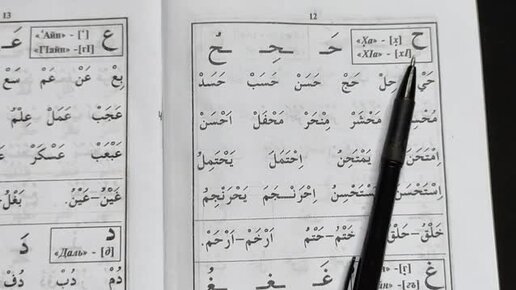 13
«'Айн» - [']
«ГIайн» - [гI]
ع
عَـ
بِعْ عَنْ عَم سَعْ
عَجَبَ عَمَلْ عِلْمُ
عَبْعَبَ عَسْكَرْ
غَيْنُ-عَيْنُ. بَغْلُ
د
دَ
«Даль» - [д]
دُمْ دُبْ دُفْ
12
«Ха» - [х]
«ХIа» - [хI]
ح
حَـ ـحِـ ـحُ
حَيْ حِلْ حَجْ حَسَنْ حَسَبْ حَسَدْ
مَحْشَرْ مِنْحَرْ مَحْفَلْ اَحْسَنْ
اِمْتَحَنَ يَمْتَحِنُ اِحْتَمَلَ يَحْتَمِلُ
اِسْتَحْسَنَ يَسْتَحْسِنُ اِحْرَنْجَمَ يَحْرَنْجِمُ
خَلْقُ-حَلْقُ خَتْمُ-حَتْمُ اَرْخَمْ-اَرْحَمْ.
غ
غَـ ـغِـ ـغُ